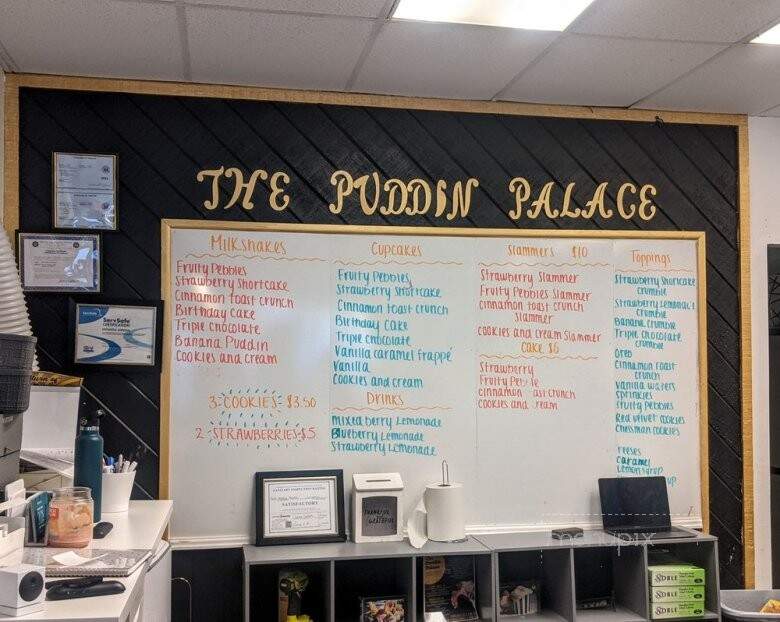 THE PUDDIN PALACE
Milkshakes
Fruity Pebbles
Strawberry Shortcake
Cinnamon toast crunch
Birthday Cake
Triple chocolate
Banana Puddin
Cookies and cream
3-COOKIES-$3.50
2-STRAWBERRIES-$5
Cupcakes
Fruity Pebbles
Strawberry Shortcake
Cinnamon toast crunch
Birthday Cake
Triple chocolate
Vanilla caramel frappé
Vanilla
cookies and cream
Drinks
Mixed berry Lemonade
Blueberry Lemonade
Strawberry Lemonade
Slammers $10
Strawberry Slammer
Fruity Pebbles Slammer
cinnamon toast crunch
Slammer
cookies and cream Slammer
Cake $6
Strawberry
Fruity
cinnamon crunch
cookies and
Toppings
Strawberry Shortcake
crumble
Strawberry
crumble
Banana Crumble
Triple Chocolate
crumble
Oreo
Cinnamon toast
crunch
vanilla wafers
sprinkles
fruity Pebbles
Red velvet cookies
Chessman cookies
reeses
caramel
Lemon syrup
ServSafe
CERTIFICATION
SATISFACTORY
THANKFUL
GRATEFUL
NOBLE
NOBLE
NOBLE